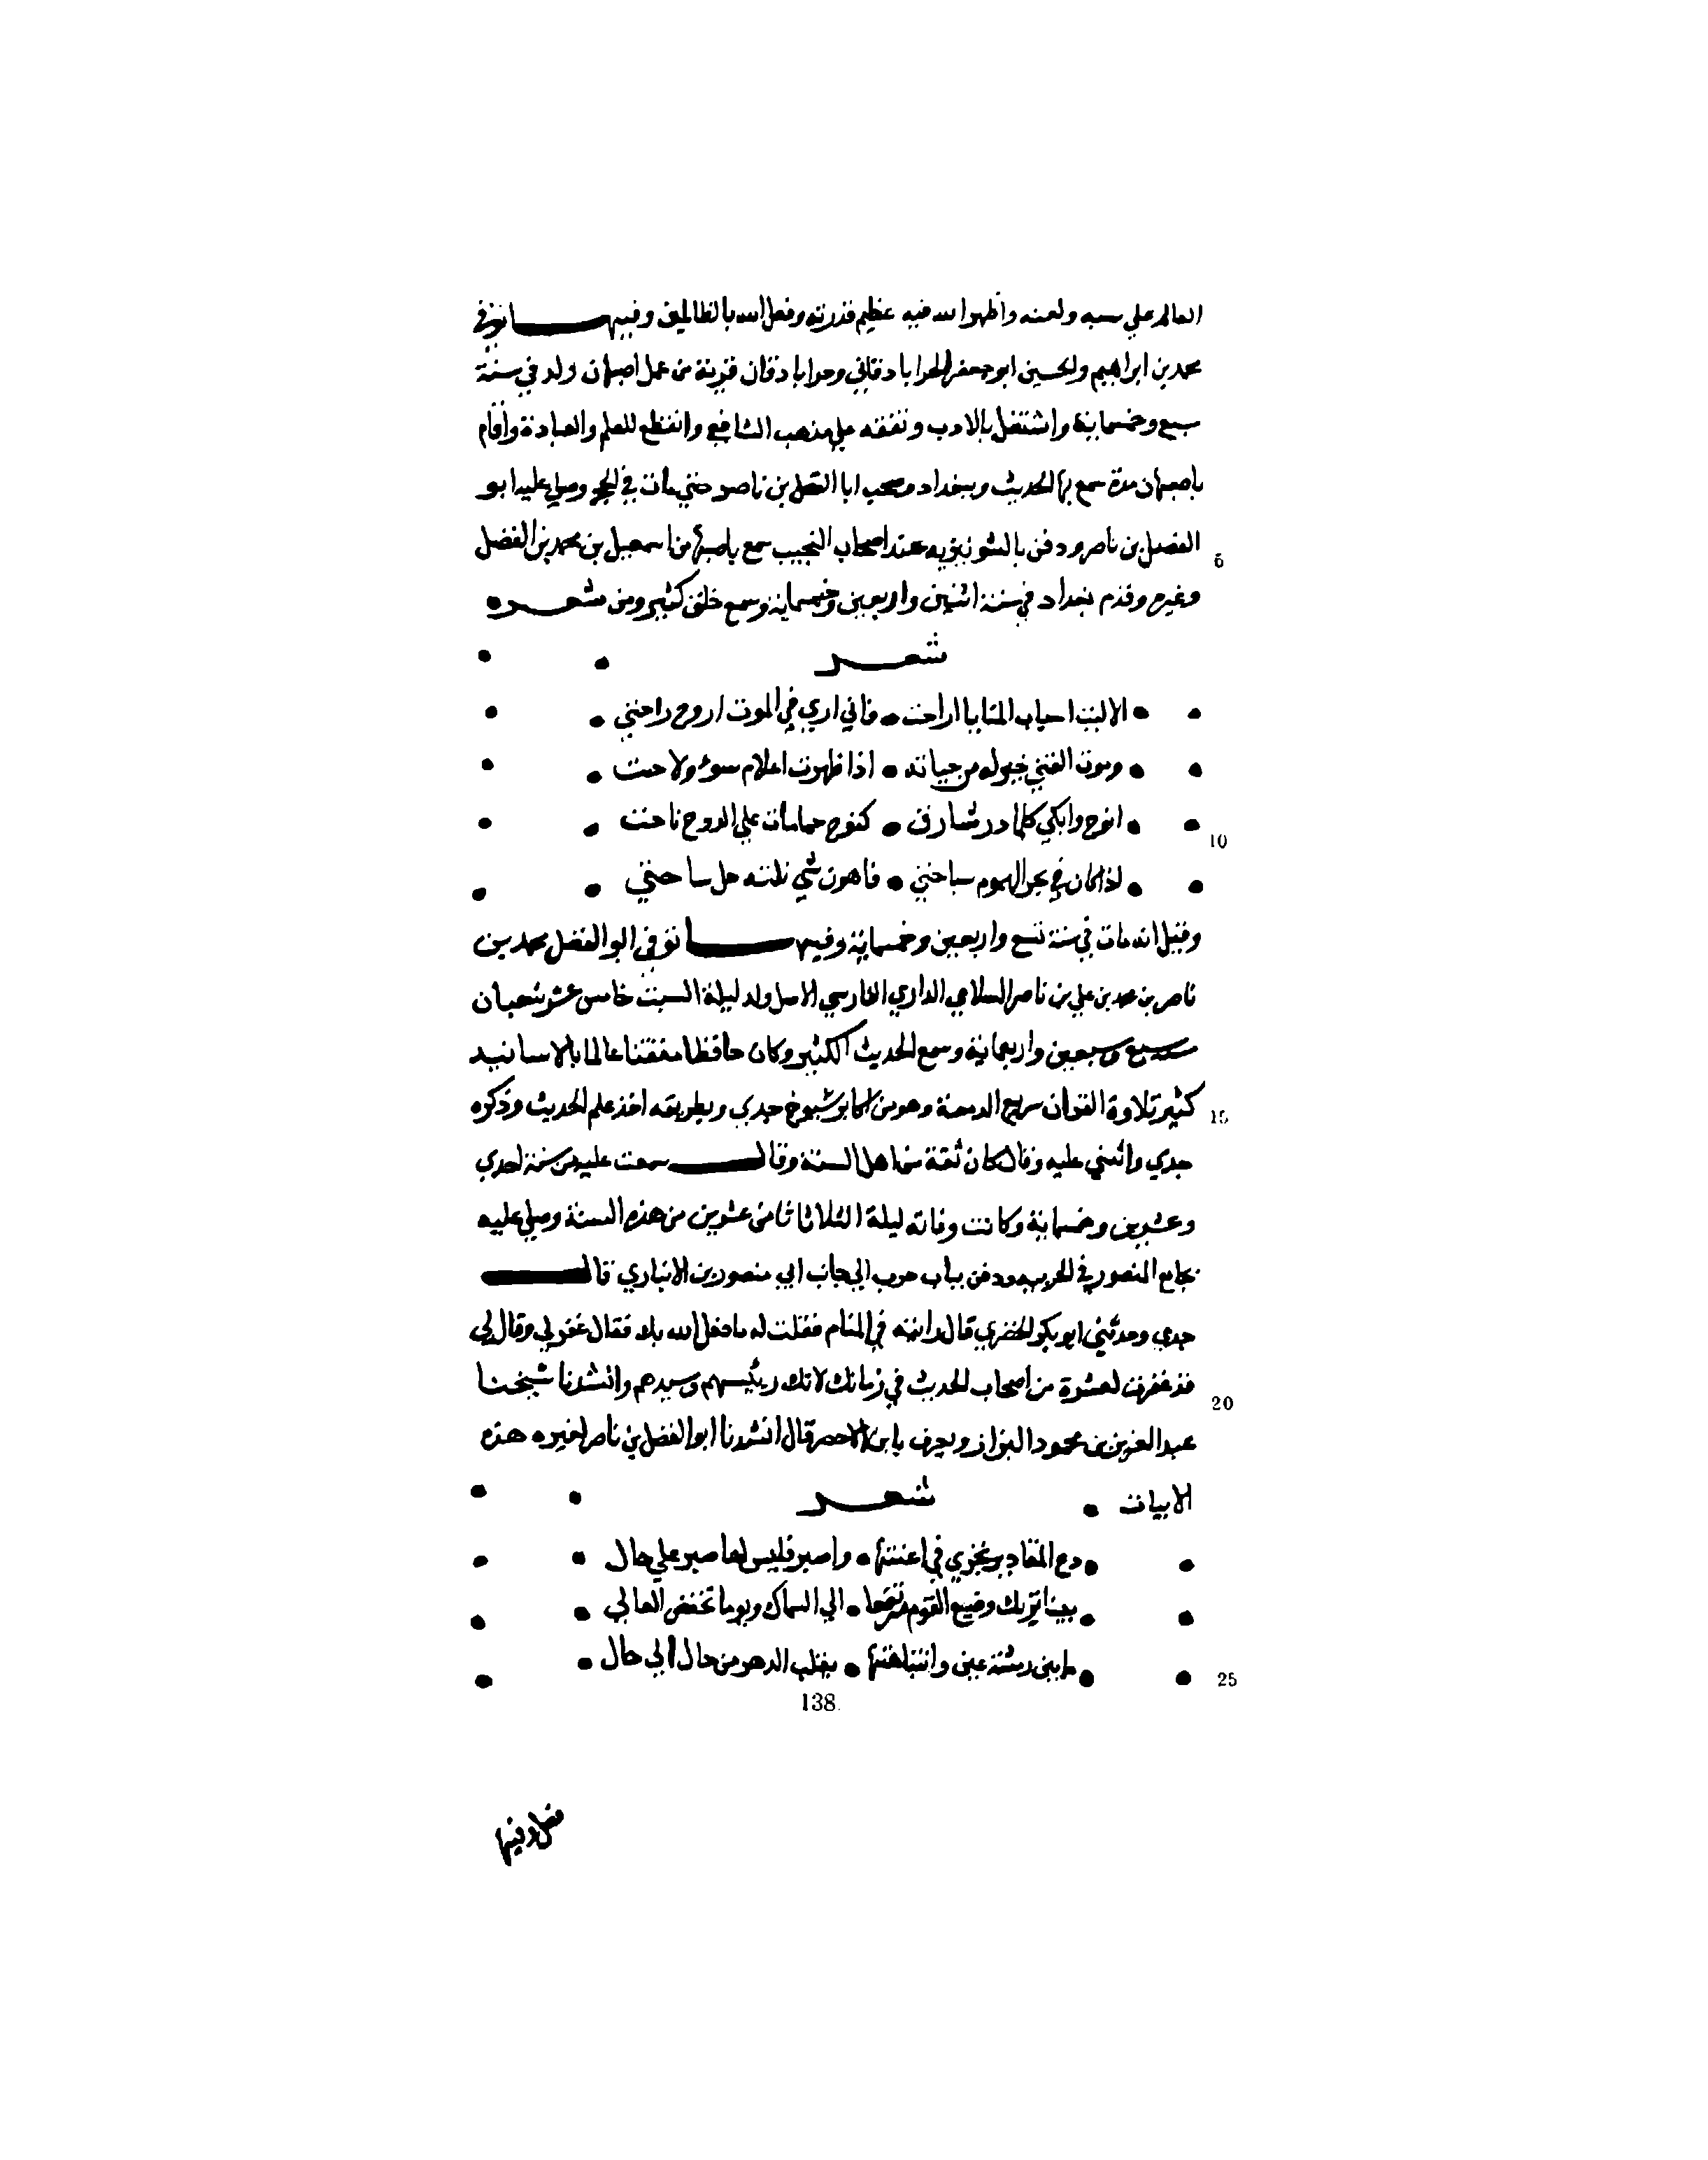 العالم علي سبه ولعنه واظهر الله فيه عظيم قدرته وفعل الله بالظالمين وفيها توفي
محمد بن ابراهيم والحسين ابو جعفر الجرابادقاني وجرابادقان قرية من عمل اصبهان ولد في سنة
سبع وخمسماية واشتغل بالادب وتفقه علي مذهب الشافعي وانقطع للعلم والعبادة واقام
باصبهان مدة سمع بها الحديث وببغداد وصحب ابا الفضل بن ناصر حتي مات في الحج وصلي عليه ابو
الفضل بن ناصر ودفن بالشونيزيه عند اصحاب النجيب سمع باصبهان اسمعيل بن محمد بن الفضل
5
وغيره وقدم بغداد في سنة اثنين واربعين وخمسماية وسمع خلق كثير ومن شعره
شعر
الا ليت احباب المنايا اراحت • فاني اري في الموت اروح راحتي
وموت الفتي خير له من حياته • اذا ظهرت اعلام سوء ولاحت
انوح وابكي كلما در شارق • كنوح حمامات علي الدوح ناحت
10
لذا كان في بحر الهموم سباحتي • فاهون شي نلته حل ساحتي
وقيل انه مات في سنة تسع واربعين وخمسماية وفيها توفي ابو الفضل محمد بن
ناصر بن محمد بن علي بن ناصر السلامي الداري الفارسي الاصل ولد ليلة السبت خامس عشر شعبان
سنة سبع وسبعين واربعماية وسمع الحديث الكثير وكان حافظا متقنا عالما بالاسانيد
كثير تلاوة القران سريع الدمعة وهو من اكابر شيوخ جدي وبطريقه اخذ علم الحديث وذكره
15
جدي واثني عليه وقال كان ثقة من اهل السنة وقال سمعت عليه من سنة احدي
وعشرين وخمسماية وكانت وفاته ليلة الثلاثا ثامن عشرين من هذه السنة وصلي عليه
بجامع المنصور في الحربيه ودفن بباب حرب الي جانب ابي منصور بن الانباري قال
جدي وحدثني ابو بكر الخضري قال رايته في المنام فقلت له ما فعل الله بك فقال غفر لي وقال لي
قد غفرت لعشرة من اصحاب الحديث في زمانك لانك رئيسهم وسيدهم وانشدنا شيخنا
20
عبد العزيز بن محمود البزاز ويعرف بابن الاخضر قال انشدنا ابو الفضل بن ناصر لغيره هذه
الابيات • شعر
دع المقادير تجري في اعنتها • واصبر فليس لها صبر علي حال
بينا تريك وضيع القوم مرتفعا • الي السماك ويوما تخفض العالي
ما بين رمشة عين وانتباهتها • يقلب الدهر من حال الي حال
25
138